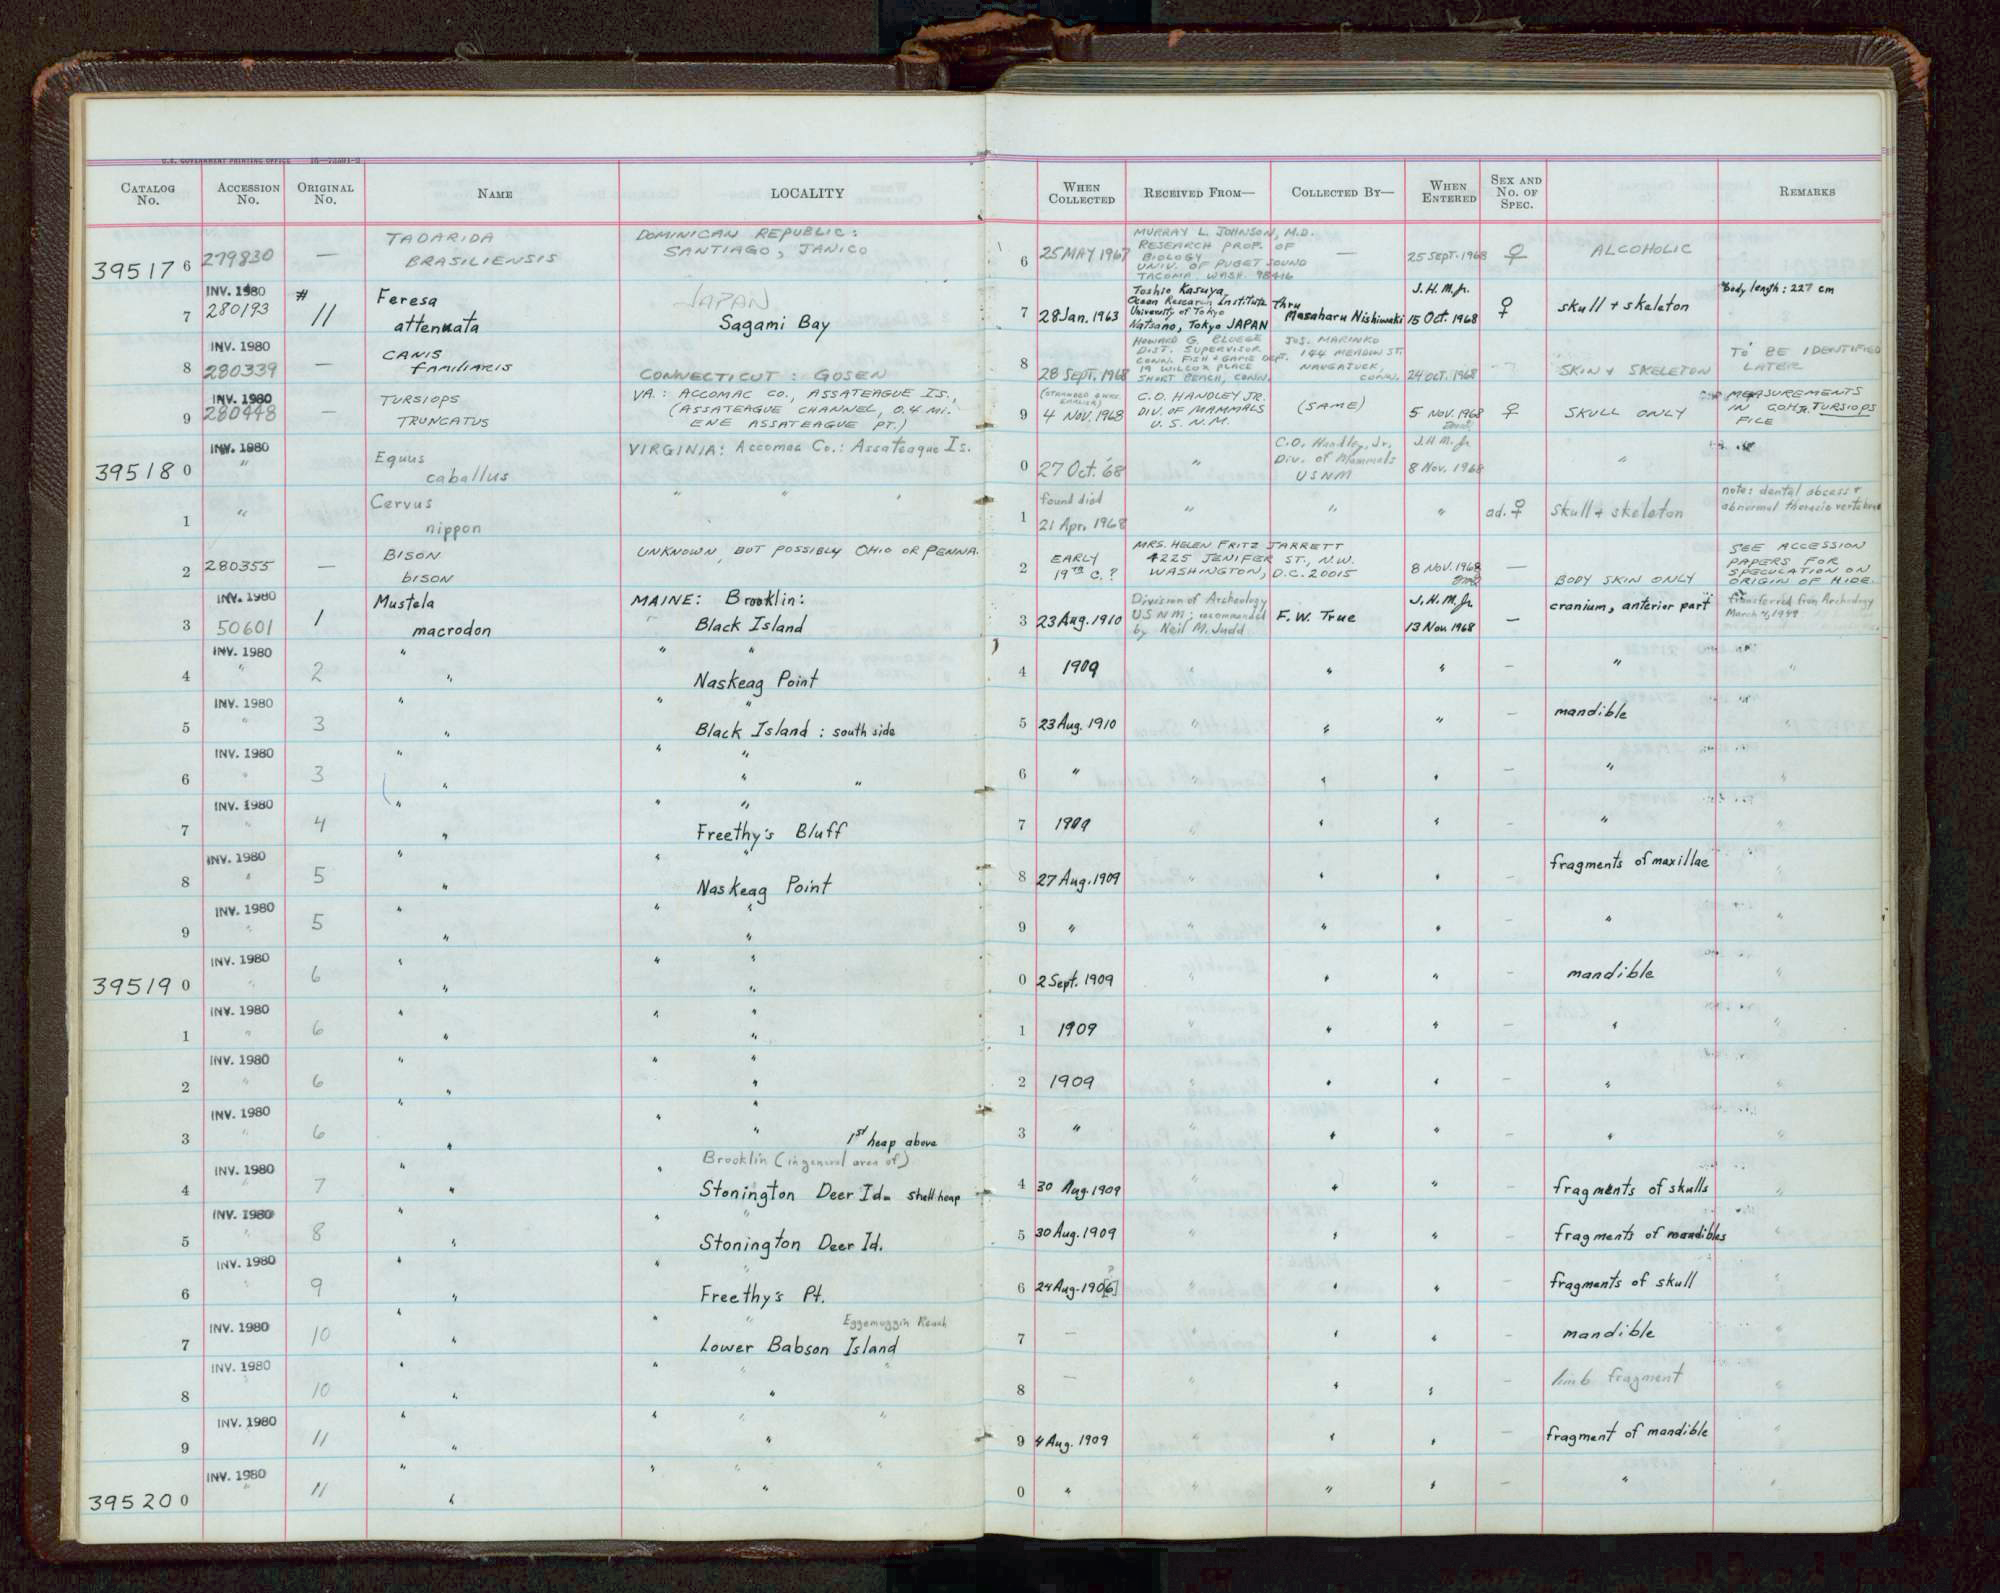 U.S. GOVERNMENT PRINTING OFFICE
CATALOG No. ACCESSION No. ORIGINAL No. NAME LOCALITY WHEN COLLECTED RECEIVED FROM— COLLECTED BY— WHEN ENTERED SEX AND No. OF SPEC. REMARKS
395176 279830 — TADARIDA BRASILIENSIS DOMINICAN REPUBLIC: SANTIAGO, JANICO 6 25 MAY 1967 MURRAY L. JOHNSON, M.D. RESEARCH PROF. OF BIOLOGY UNIV. OF PUGET SOUND TACOMA, WASH. 98416 — 25 SEPT. 1968 ♀ ALCOHOLIC
7 INV. 1980 280193 # 11 Feresa attenuata JAPAN Sagami Bay 7 28 Jan. 1963 Toshio Kasuya, Ocean Research Institute University of Tokyo Natsano, Tokyo JAPAN Thru Masaharu Nishiwaki J.H.M. Jr. 15 Oct. 1968 ♀ skull + skeleton Body length: 227 cm
8 INV. 1980 280339 — CANIS familiaris CONNECTICUT: GOSEN 8 28 SEPT. 1968 HOWARD G. DIST. SUPERVISOR CONN. FISH + GAME DEPT. 19 WILCOX PLACE SHORT BEACH, CONN. JOS. MARINKO 144 MEADOW ST. NAUGATUCK, CONN. 24 OCT. 1968 — SKIN + SKELETON TO BE IDENTIFIED LATER
9 INV. 1980 280448 — TURSIOPS TRUNCATUS VA.: ACCOMAC CO., ASSATEAGUE IS., (ASSATEAGUE CHANNEL, 0.4 MI. ENE ASSATEAGUE PT.) 9 (STRANDED EARLIER) 4 NOV. 1968 C.O. HANDLEY JR. DIV. OF MAMMALS U.S.N.M. (SAME) 5 NOV. 1968 ♀ SKULL ONLY MEASUREMENTS IN COH Jr. TURSIOPS FILE
395180 INV. 1980 " Equus caballus VIRGINIA: Accomac Co.: Assateague Is. 0 27 Oct. '68 " C.O. Handley, Jr., Div. of Mammals USNM J.H.M. Jr. 8 Nov. 1968 "
1 " Cervus nippon " " " 1 found died 21 Apr. 1968 " " " ad. ♀ skull + skeleton note: dental abcess + abnormal thoracic vertebrae
2 280355 — BISON bison UNKNOWN, BUT POSSIBLY OHIO OR PENNA. 2 EARLY 19TH C.? MRS. HELEN FRITZ JARRETT 4225 JENIFER ST., N.W. WASHINGTON, D.C. 20015 8 NOV. 1968 — BODY SKIN ONLY SEE ACCESSION PAPERS FOR SPECULATION ON ORIGIN OF HIDE.
3 INV. 1980 50601 1 Mustela macrodon MAINE: Brooklin: Black Island 3 23 Aug. 1910 Division of Archeology USNM; recommended by Neil M. Judd F.W. True J.H.M. Jr. 13 Nov 1968 — cranium, anterior part transferred from Archeology March 4, 1949
4 INV. 1980 " 2 " " " " Naskeag Point 4 1909 " " " — " "
5 INV. 1980 " 3 " " " " Black Island: south side 5 23 Aug. 1910 " " " — mandible "
6 INV. 1980 " 3 " " " " " " 6 " " " " — " "
7 INV. 1980 " 4 " " " " Freethy's Bluff 7 1909 " " " — " "
8 INV. 1980 " 5 " " " " Naskeag Point 8 27 Aug. 1909 " " " — fragments of maxillae "
9 INV. 1980 " 5 " " " " " 9 " " " " — " "
395190 INV. 1980 " 6 " " " " " 0 2 Sept. 1909 " " " — mandible "
1 INV. 1980 " 6 " " " " " 1 1909 " " " — " "
2 INV. 1980 " 6 " " " " " 2 1909 " " " — " "
3 INV. 1980 " 6 " " " " " 3 " " " " — " "
4 INV. 1980 " 7 " " " Brooklin (in general area of) Stonington Deer Id. 1st heap above shell heap 4 30 Aug. 1909 " " " — fragments of skulls "
5 INV. 1980 " 8 " " " " Stonington Deer Id. 5 30 Aug. 1909 " " " — fragments of mandibles "
6 INV. 1980 " 9 " " " " Freethy's Pt. 6 24 Aug. 190[6]? " " " — fragments of skull "
7 INV. 1980 " 10 " " " " Eggemoggin Reach Lower Babson Island 7 — " " " — mandible "
8 INV. 1980 " 10 " " " " " " 8 — " " " — limb fragment "
9 INV. 1980 11 " " " " " " 9 4 Aug. 1909 " " " — fragment of mandible "
395200 INV. 1980 " 11 " " " " " " 0 " " " " — " "